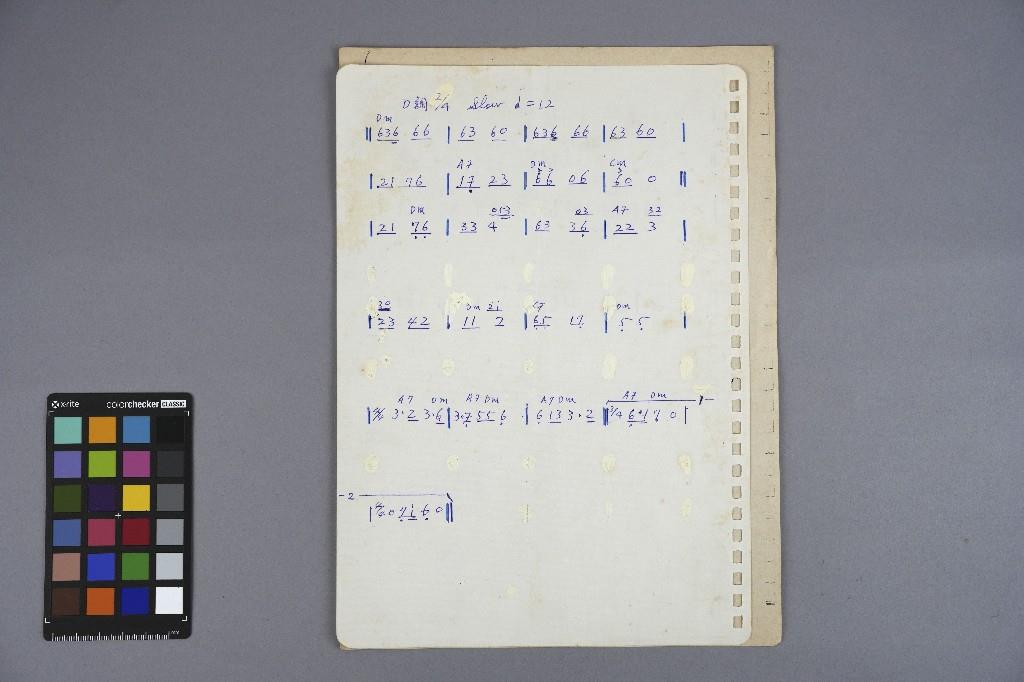 D調 2/4 Slow ♩=12
Dm
‖ 636 66 | 63 60 | 636 66 | 63 60 |
A7 Dm
| 21 76 | 17 23 | 66 06 | 60 0 ‖
Dm 013 03 A7 32
| 21 76 | 33 4 | 63 36 | 22 3 |
30 Dm 21 Dm
| 23 42 | 11 2 | 65 17 | 5 5 |
A7 Dm A7 Dm A7 Dm A7 Dm 1
| 3·2 3·6 | 3·7 55 6 | 6 133·2 ‖ 3/4
2
x-rite colorchecker CLASSIC
mm